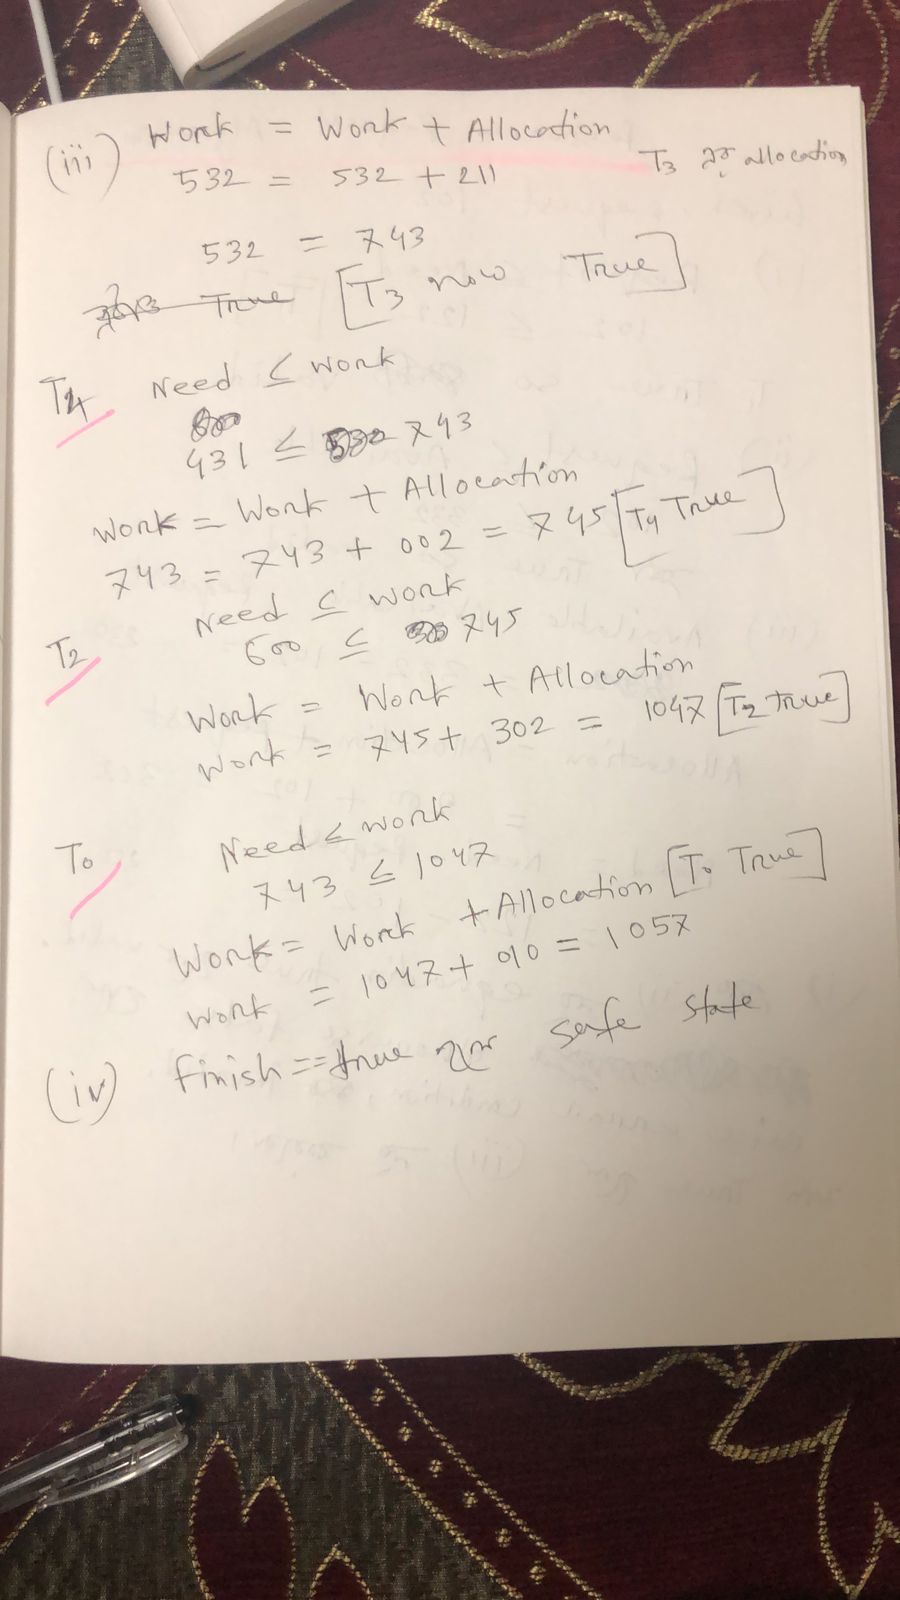 (iii) Work = Work + Allocation
532 = 532 + 211
T3 এর allocation
532 = 743
True [T3 now True]
T4 Need ≤ work
431 ≤ 743
work = Work + Allocation
743 = 743 + 002 = 745 [T4 True]
T2 Need ≤ work
600 ≤ 745
Work = Work + Allocation
work = 745 + 302 = 1047 [T2 True]
T0 Need ≤ work
743 ≤ 1047
Work = Work + Allocation [T0 True]
work = 1047 + 010 = 1057
(iv) finish == true safe state